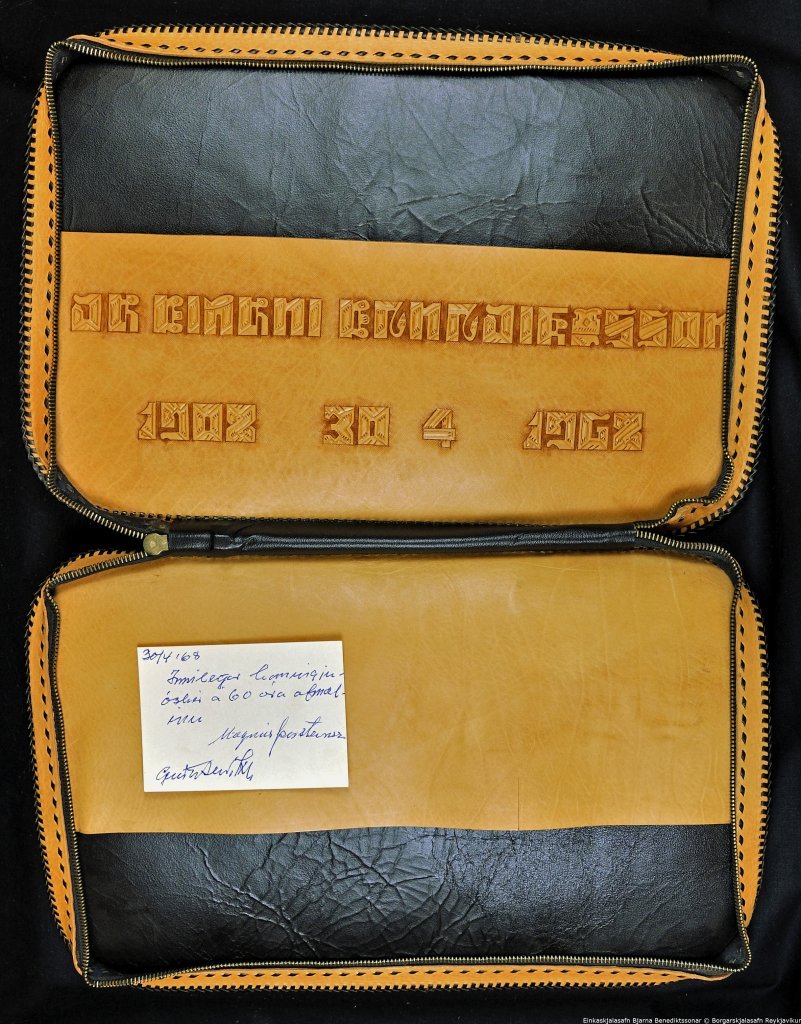 DR BJARNI BENEDIKTSSON
1908 30 4 1968
30/4 '68
Innilegar hamingju-
óskir á 60 ára afmæl-
inu
Magnús
Einkaskjalasafn Bjarna Benediktssonar © Borgarskjalasafn Reykjavíkur